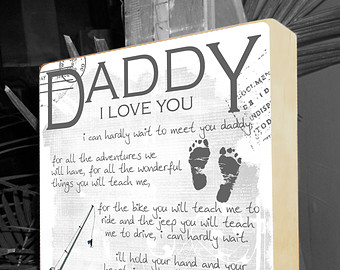 DADDY
I LOVE YOU
i can hardly wait to meet you daddy,
for all the adventures we
will have, for all the wonderful
things you will teach me,
for the bike you will teach me to
ride and the jeep you will teach
me to drive, i can hardly wait.
ill hold your hand and your